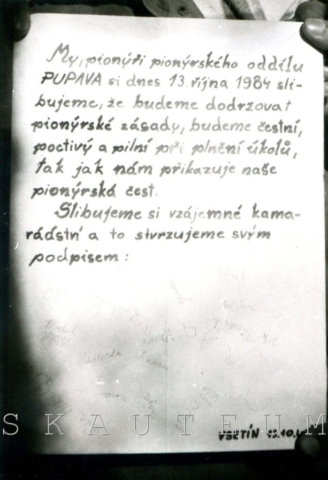 My, pionýři pionýrského oddílu
PUPAVA si dnes 13. října 1984 sli-
bujeme, že budeme dodržovat
pionýrské zásady, budeme čestní,
poctivý a pilní při plnění úkolů,
tak jak nám přikazuje naše
pionýrská čest.
Slibujeme si vzájemné kama-
rádství a to stvrzujeme svým
podpisem:
SKAUTEUM
VSETÍN 13.10.